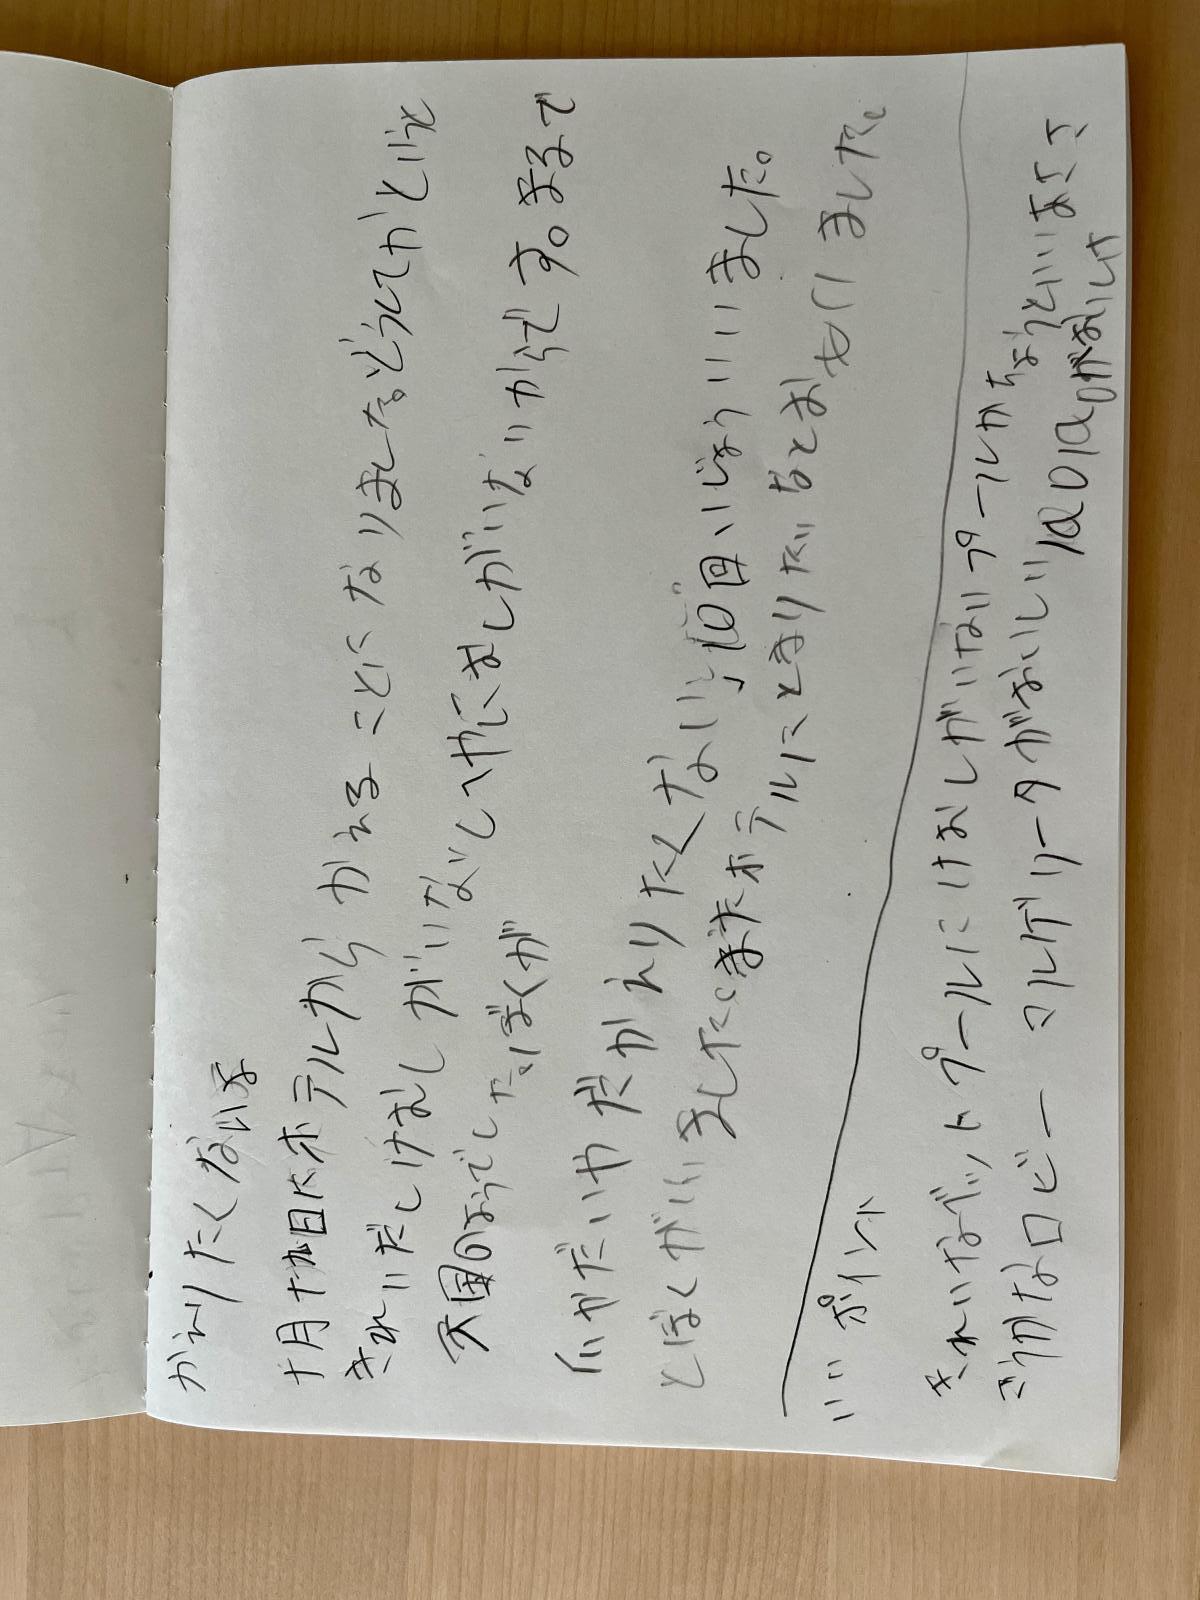 かえりたくないな
十月十九日にホテルからかえることになりました。どうしてかというと
きれいだしけむしがいないしへやにむしがいないからです。まるで
天国のようでした。ぼくが
「いやだいやだかえりたくない」と10回いじょういいました。
とぼくがいいました。またホテルにとまりたいなとおもいました。
いいポイント
きれいなベットプールにけむしがいないプールがちょうどいいあささ
ごうかなロビー マルゲリータがおいしい